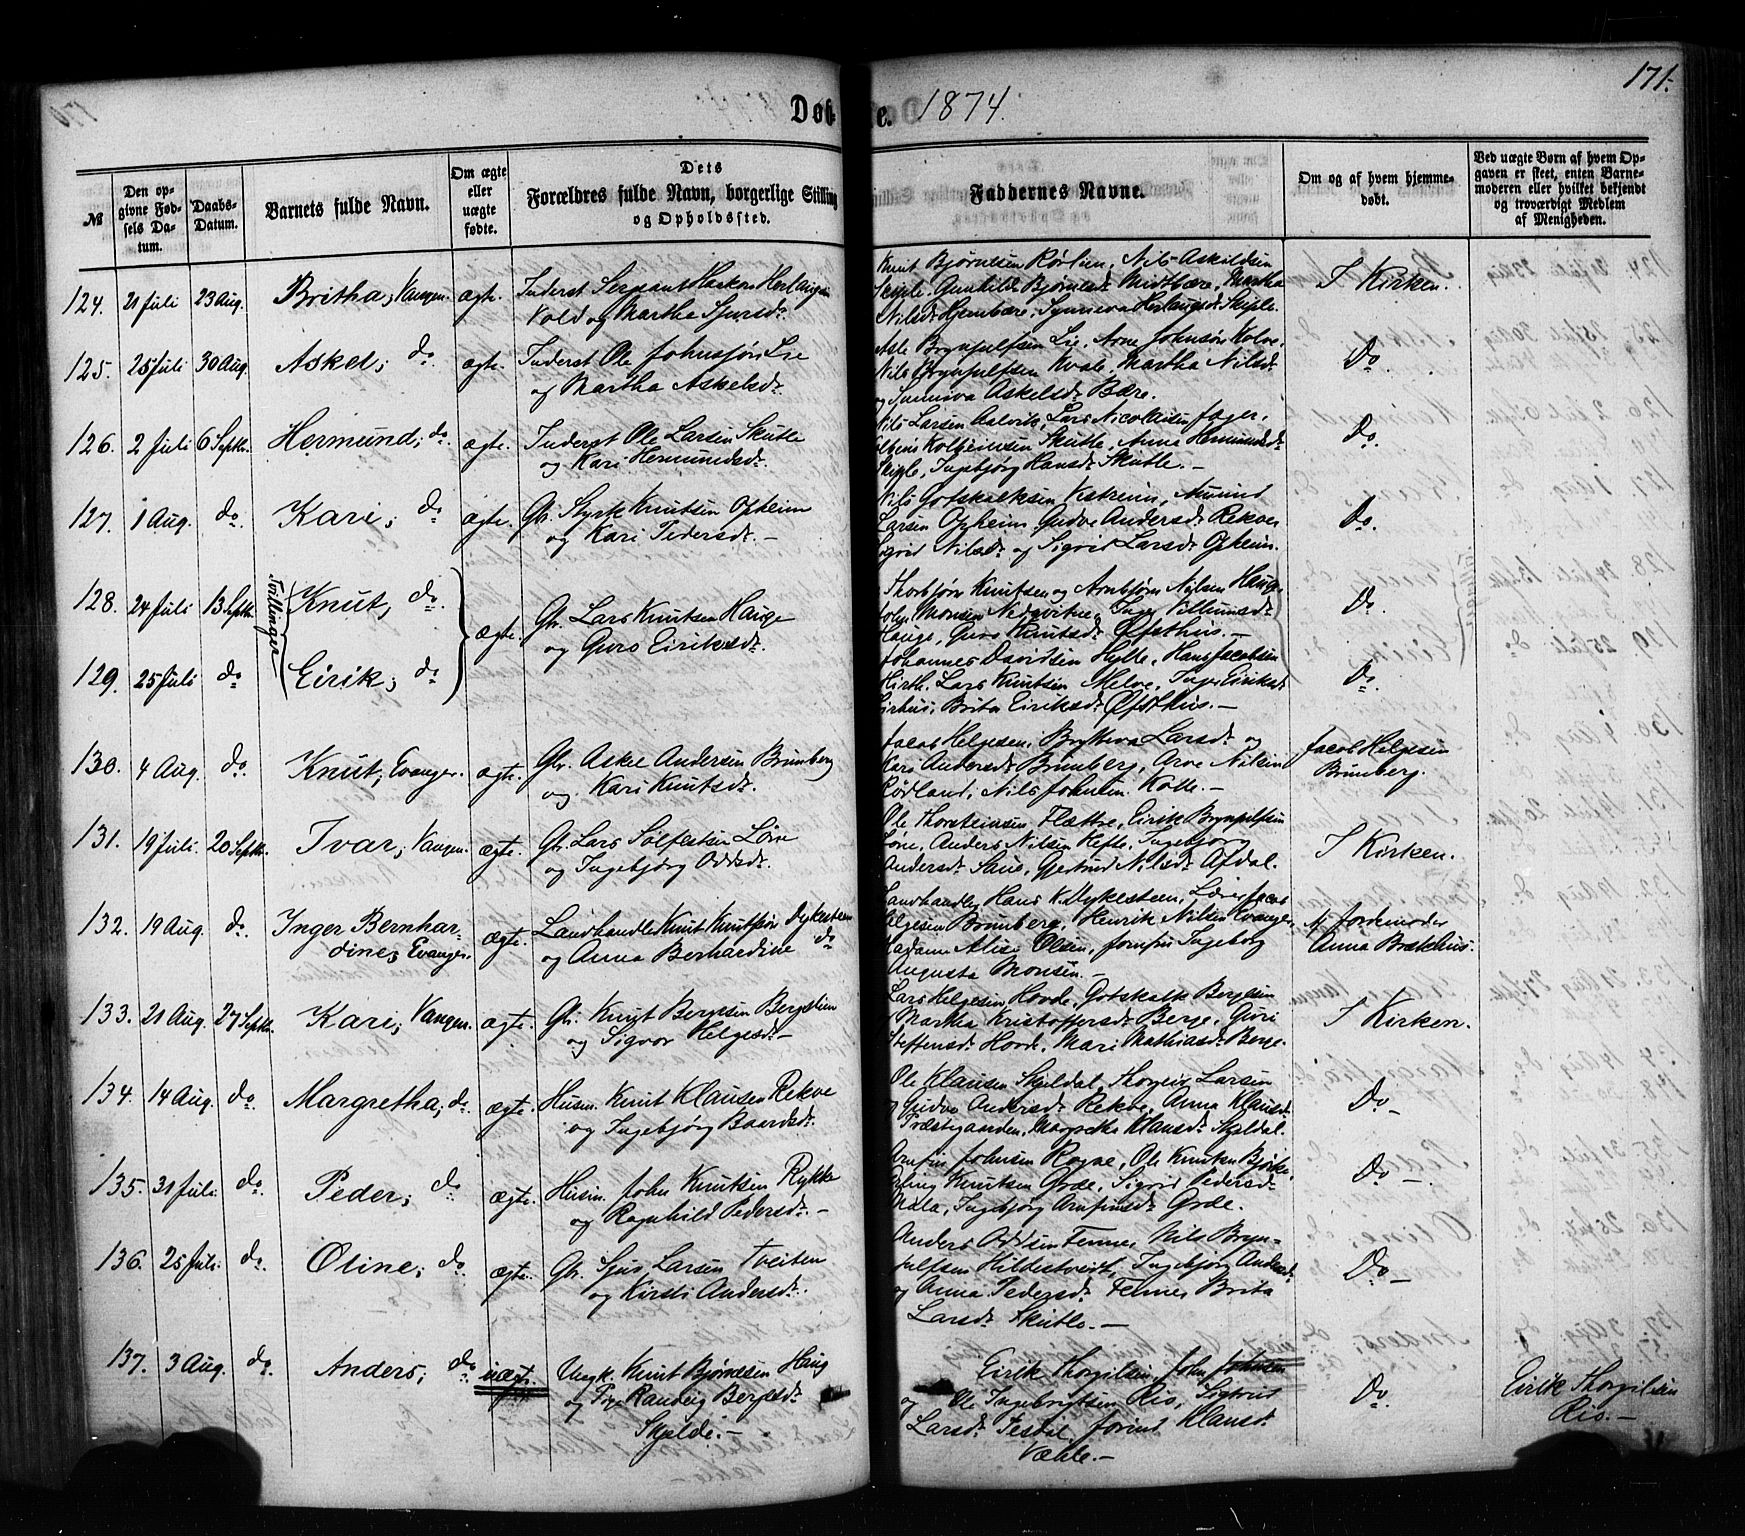 171.
Døbte. 1874.
№
Den opgivne Fødsels Datum.
Daabs-Datum.
Barnets fulde Navn.
Om ægte eller uægte fødte.
Dets Forældres fulde Navn, borgerlige Stilling og Opholdssted.
Faddernes Navne.
Om og af hvem hjemmedøbt.
Ved uægte Børn af hvem Opgaven er skeet, enten Barnemoderen eller hvilket bekjendt og troværdigt Medlem af Menigheden.
124. 21 Juli 23 Aug. Britha, Vangen. ægte. Inderst Sergeant Haakon Herlaugsen
Vold og Martha Sjursdr.
Knut Bjørnesen Rørlien, Nils Askildsen
Skiple. Gunhilde Bjørnesdr Midtbære, Martha
Nilsdr Hjembære, Synneva Herlaugsdr Skiple.
I Kirken.
125. 25 Juli 30 Aug. Askel, do ægte. Inderst Ole Johnssøn Lie
og Martha Askelsdr.
Asle Brynjulfsen Lie. Arne Johnsøn Kolve.
Nils Brynjulfsen Kvale. Martha Nilsdr
og Sunniva Askelsdr Bære.
Do.
126. 2 Juli 6 Septbr. Hermund, do. ægte. Inderst Ole Larsen Skutle
og Kari Hermundsdr.
Nils Larsen Aalvik, Lars Nicolaisen Fager,
Kolbeinsen Skutle, Anna Hermundsdr
Skiple, Ingebjørg Hansdr Skutle.—
Do.
127. 1 Aug. do. Kari, do ægte. Gbr. Styrk Knutsen Opheim
og Kari Pedersdr.—
Nils Gotskalksen Vestreim, Amund
Larsen Opheim. Gudve Andersdr Rekve
Sigrid Nilsdr og Sigrid Larsdr Opheim.
Do.
Tvillinger
128. 24 Juli 13 Septbr. Knut, do. ægte. Gbr. Lars Knutsen Hauge
og Guro Eiriksdr
Thorbjørn Knutsen og Arnbjørn Nilsen Hauge
John Monsen Nedqvitne, Inger Villumsdr
Hauge, Guro Knutsdr Øfsthus.—
Do.
129. 25 Juli do Eirik, do
Johannes Davidsen Hylle, Hans Jacobsen
Hirth. Lars Knutsen Melve, Inger Eiriksdr
Brita Eiriksdr Øfsthus.—
Do.
130. 4 Aug. do. Knut, Evanger. ægte. Gbr. Aske Andersen Brunberg
og Kari Knutsdr.
Jacob Helgesen, Brytteva Larsdr og
Kari Andersdr Brunberg, Arve Nilsen
Rødland, Nils Johnsen Kolle.—
Jacob Helgesen
Brunberg.
131. 19 Juli. 20 Septbr. Ivar, Vangen. ægte. Gbr. Lars Solfestsen Løne
og Ingebjørg Oddsdr.
Ole Thorsteinsen Flættre, Eirik Brynjulfsen
Løne, Anders Nilsen Refte, Ingebjørg
Andersdr Saue, Gjertrud Nilsdr Afdal.
I Kirken.
132. 19 Aug. do. Inger Bernhar-
dine, Evanger. ægte. Landhandler Knut Knutssøn Dykesteen
og Anna Berhardine do
Landhandler Hans K. Mykesteen, Lærer Jacob
Helgesen Brunberg, Henrik Nilsen Evanger,
Madame Alise Olsen, Jomfru Ingeborg
Augusta Monsen.—
Af Jordemoder
Anna Brækhus.
133. 21 Aug. 27 Septbr. Kari, Vangen. ægte. Gbr. Knut Bergesen Bergslien
og Sigvor Helgesdr—
Lars Helgesen Hovde, Gotskalk Bergesen
Martha Kristoffersdr Berge, Guri
Steffensdr Hovde. Mari Mathiasdr Berge.
I Kirken.
134. 14 Aug. do. Margretha, do. ægte. Husm. Knut Klausen Rekve
og Ingebjørg Baardsdr.
Ole Klausen Skjeldal, Thorgeir Larsen
og Gudve Andersdr Rekve, Anna Klausdr
Præstegaarden, Margretha Klausdr Skjeldal.
Do—
135. 31 Juli. do Peder, do ægte. Husm. John Knutsen Rykke
og Ragnhild Pedersdr.—
Arnfin Johnsen Rogne, Ole Knutsen Bjørke,
Erling Knutsen Grøe, Sigrid Pedersdr
Mala, Ingebjørg Arnfinsdr Grøe.
Do—.
136. 25 Juli. do. Oline, do. ægte. Gbr. Sjur Larsen Tveiten
og Kirsti Andersdr.
Anders Oddsen Fenne, Nils Bryn-
julfsen Hildestveit, Ingebjørg Andersdr
og Anna Pedersdr Fenne, Brita
Larsdr Skutle.—
Do—
137. 3 Aug. do. Anders, do uægte. Ungk. Knut Bjørnesen Haug
og Pige Randeig Bergesdr
Skjelde.—
Eirik Thorgilsen, John Johnsen
og Ole Ingebrigtsen Rio, Sigtrud
Larsdr Tesdal, Jorind Klausdr
Væhle.—
Do.
Eirik Thorgilsen
Rio.—